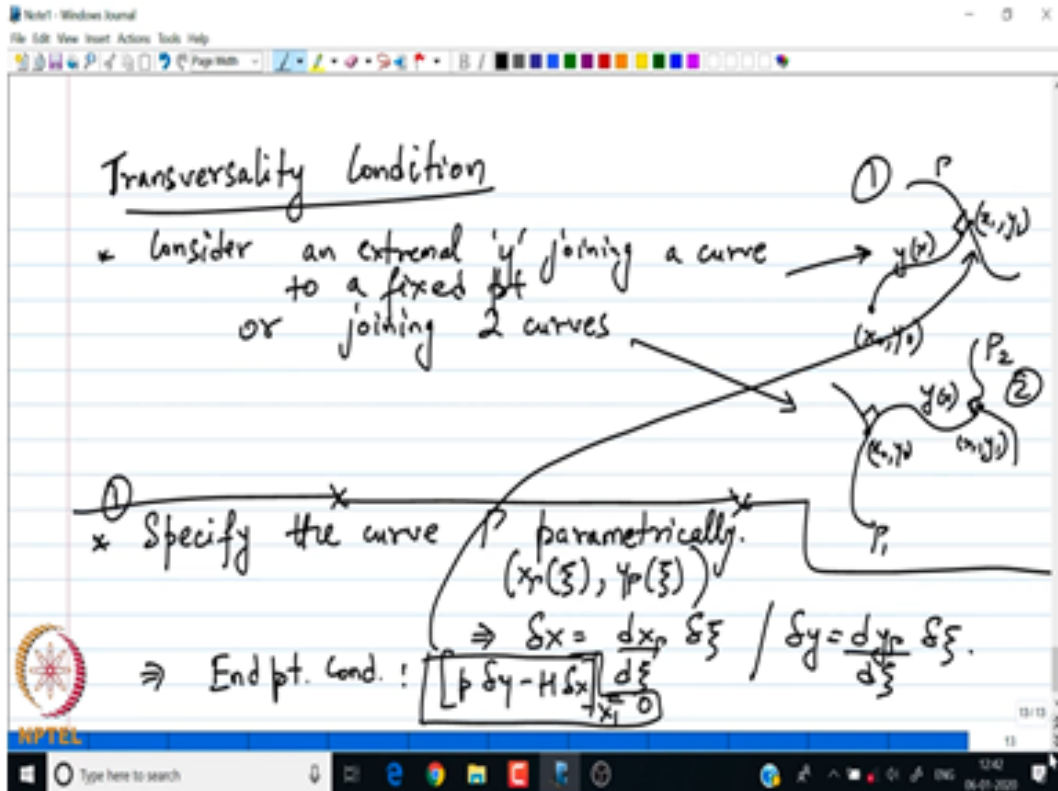 Note1 - Windows Journal
File Edit View Insert Actions Tools Help
Page Width
B I
Transversality Condition
* Consider an extremal 'y' joining a curve
to a fixed pt
or joining 2 curves
① Γ
(x₁, y₁)
y(x)
(x₀, y₀)
Γ₂
y(x) ②
(x₀, y₀) (x₁, y₁)
Γ₁
①
* Specify the curve Γ parametrically.
(xΓ(ξ), yΓ(ξ))
⇒ δx = dxΓ/dξ δξ / δy = dyΓ/dξ δξ.
⇒ End pt. Cond. : [p δy - H δx]x₁ = 0
NPTEL
13/13
13
Type here to search
ENG
12:42
06-01-2020